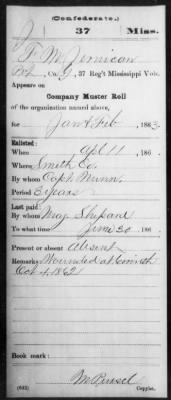 (Confederate.)
J 37 Miss.
F. M. Jernican
Pvt, Co. G, 37 Reg't Mississippi Vols.
Appears on
Company Muster Roll
of the organization named above,
for Jan & Feb, 1863.
Enlisted:
When Apl 11, 186 .
Where Smith Co.
By whom Capt. Nunn.
Period 3 years
Last paid:
By whom Maj. Shepard
To what time June 30, 186 .
Present or absent Absent
Remarks: Wounded at Corinth
Oct 4, 1862
Book mark:
(642) Copyist.